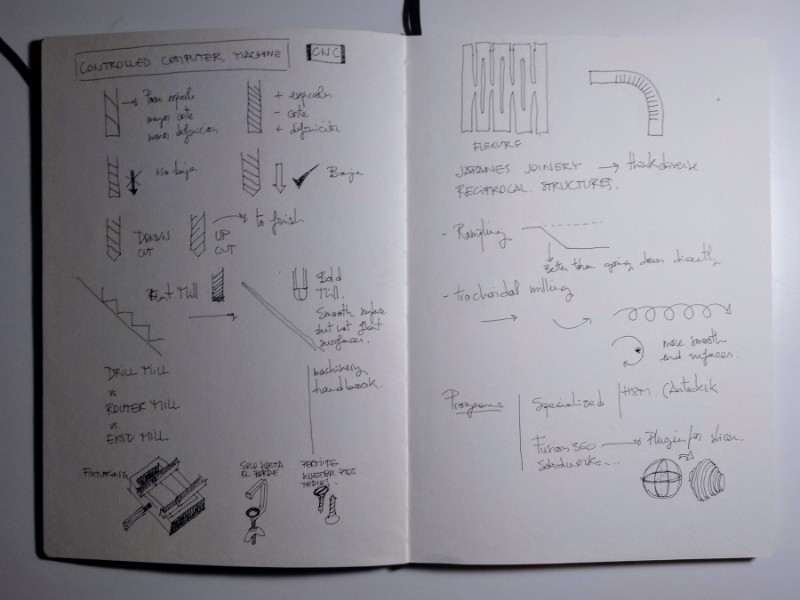 CONTROLLED COMPUTER MACHINE
CNC
Para
mayor corte
menor definicion
+
- corte
+ definición
No baja
Baja
DOWN
CUT
UP
CUT
to finish
Flat Mill
Mill.
Smooth surface
but not flat
surfaces.
DRILL MILL
ROUTER MILL
END MILL
machinery
handbook.
FIXTURING
FLEXURE
JAPANES JOINERY
RECIPROCAL STRUCTURES.
- Ramping
Better than going down directly
- Trochoidal milling
more smooth
end surfaces.
Programs
Specialized
HSM.
Fusion 360
Plugin for slicer
Solidworks...